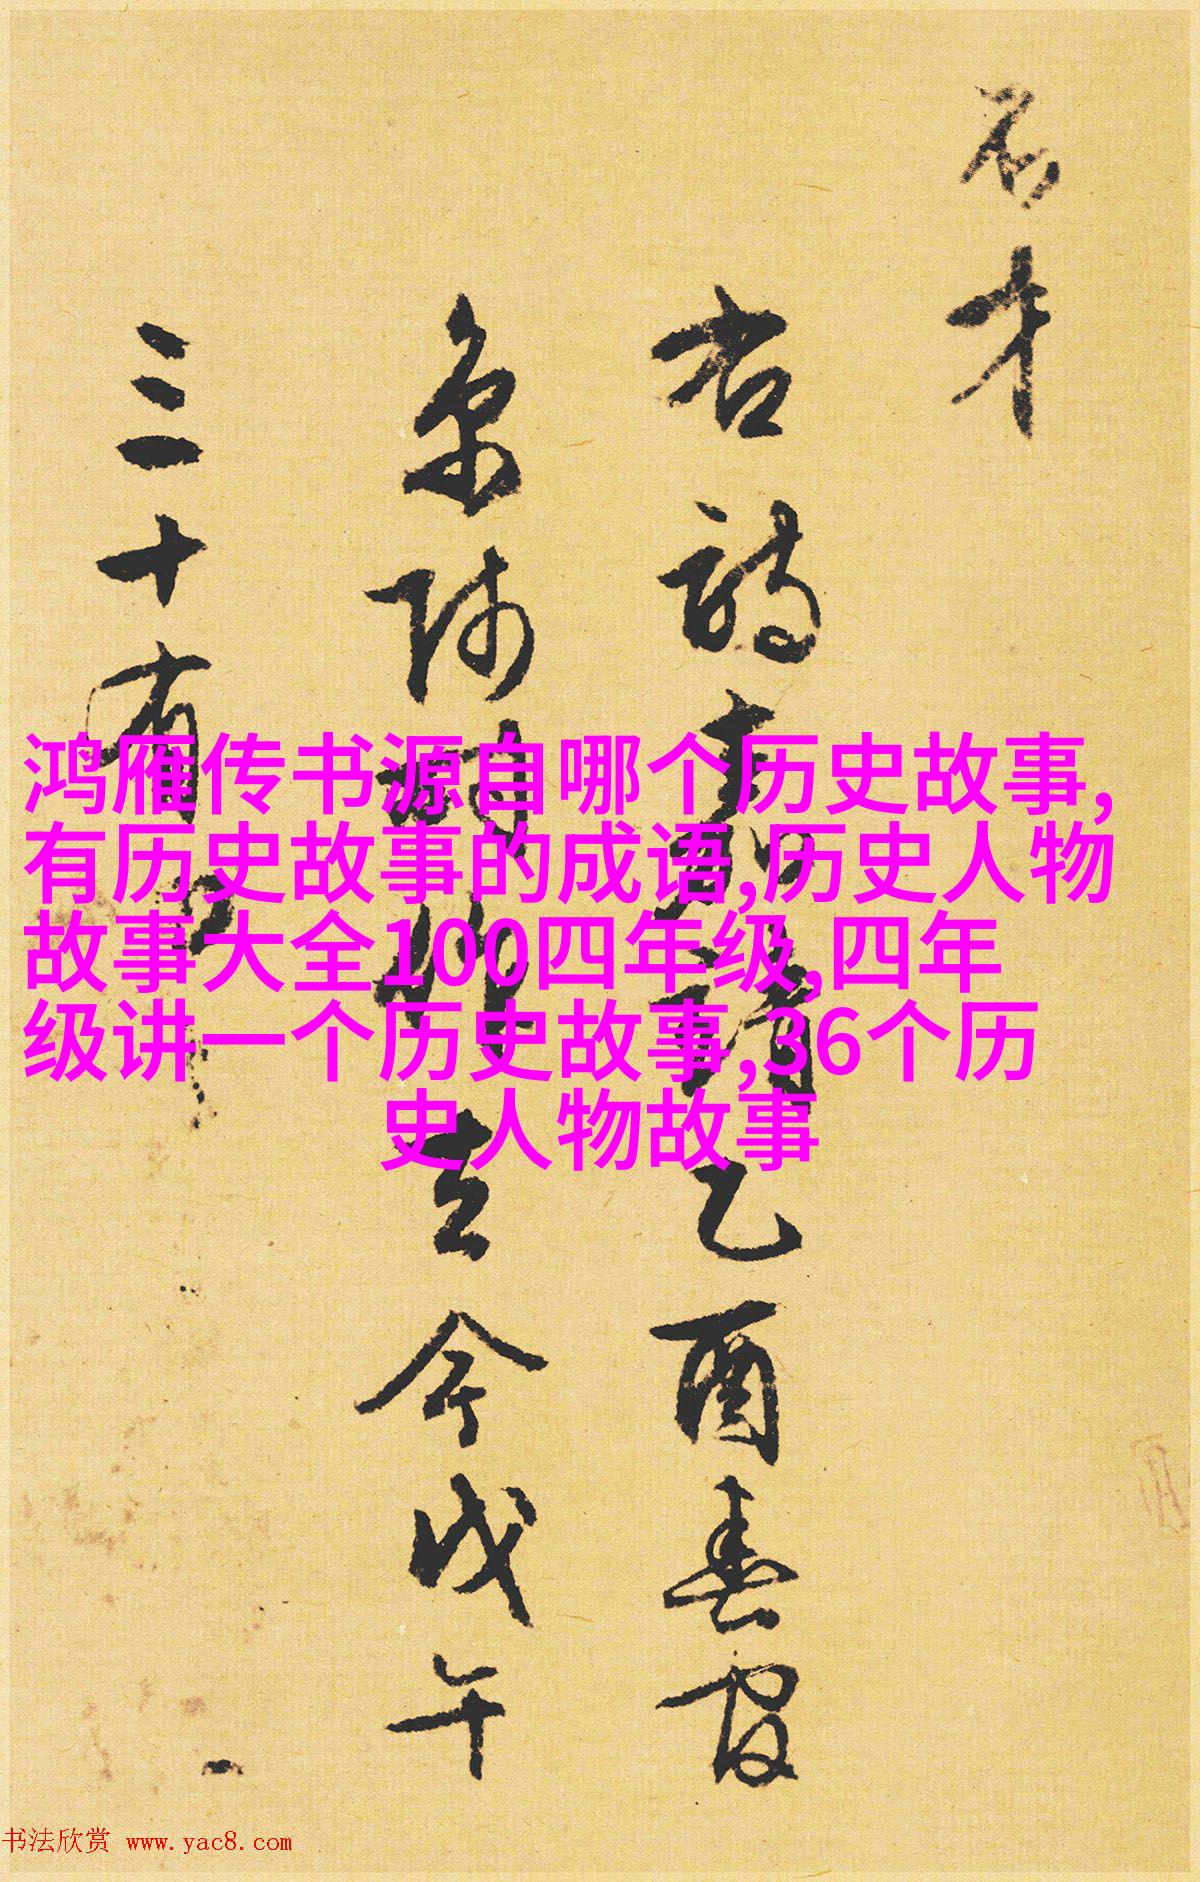 名才
右詩嘉靖乙酉春寫
京師時作去今戊午
三十有
鸿雁传书源自哪个历史故事,
有历史故事的成语,历史人物
故事大全100四年级,四年
级讲一个历史故事,36个历
史人物故事
书法欣赏 www.yac8.com